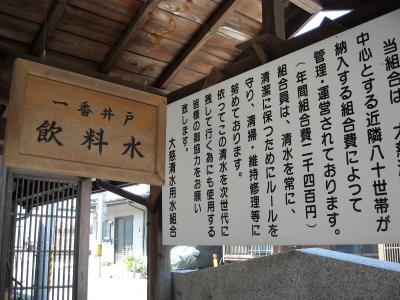 一番井戸
飲料水
当組合は、
中心とする近隣八十世帯が
納入する組合費によって
管理・運営されております。
（年間組合費二千四百円）
組合員は、清水を常に、
清潔に保つためにルールを
守り、清掃・維持修理等に
努めております。
依ってこの清水を次世代に
残して行く為にも使用する
皆様の御協力をお願い
致します。
大慈清水用水組合